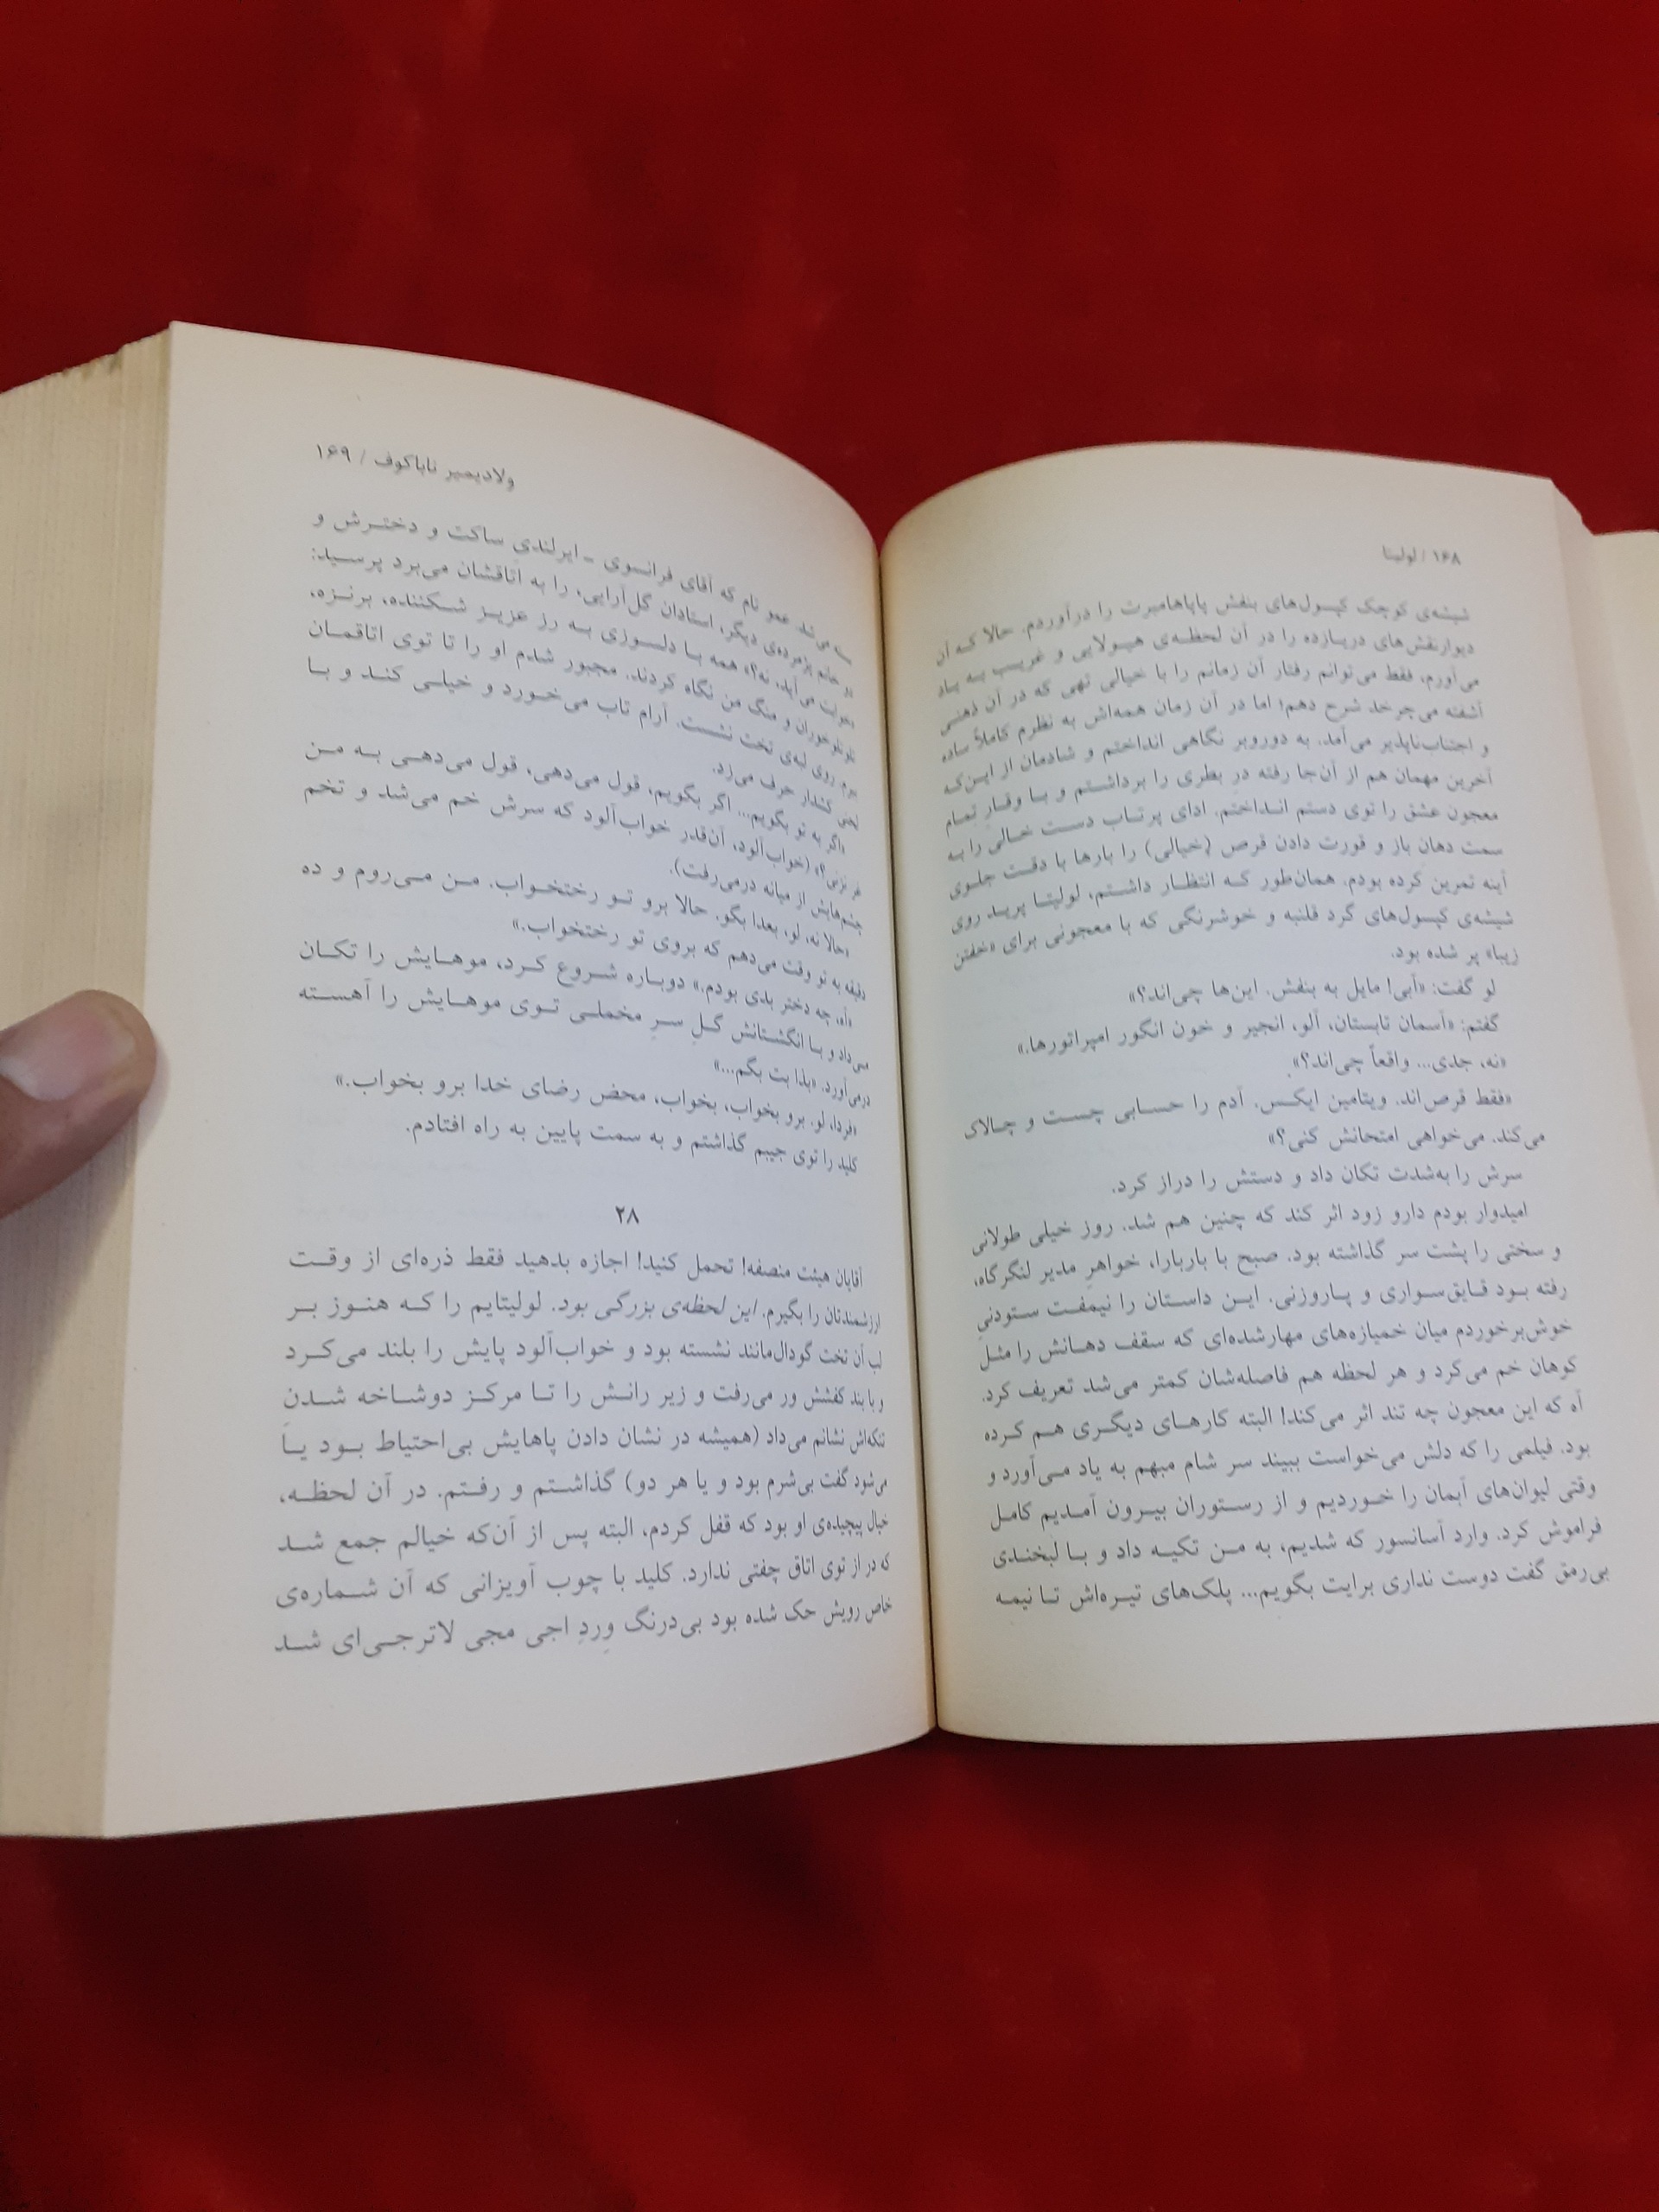 ۱۶۸ / لولیتا
شیشه‌ی کوچک کپسول‌های بنفش پاپاهامبرت را درآوردم. حالا که آن
دیوارنقش‌های دریازده را در آن لحظه‌ی هیولایی و غریب به یاد
می‌آورم، فقط می‌توانم رفتار آن زمانم را با خیالی تهی که در آن ذهنی
آشفته می‌چرخد شرح دهم؛ اما در آن زمان همه‌اش به نظرم کاملاً ساده
و اجتناب‌ناپذیر می‌آمد. به دوروبر نگاهی انداختم و شادمان از این‌که
آخرین مهمان هم از آن‌جا رفته درِ بطری را برداشتم و با وقارِ تمام
معجون عشق را توی دستم انداختم. ادای پرتاب دست خالی را به
سمت دهان باز و قورت دادن قرص (خیالی) را بارها با دقت جلوی
آینه تمرین کرده بودم. همان‌طور که انتظار داشتم، لولیتا پرید روی
شیشه‌ی کپسول‌های گرد قلنبه و خوشرنگی که با معجونی برای «خفتن
زیبا» پر شده بود.
لو گفت: «آبی! مایل به بنفش. این‌ها چی‌اند؟»
گفتم: «آسمان تابستان، آلو، انجیر و خون انگور امپراتورها.»
«نه، جدی... واقعاً چی‌اند؟»
«فقط قرص‌اند. ویتامین ایکس. آدم را حسابی چست و چالاک
می‌کند. می‌خواهی امتحانش کنی؟»
سرش را به‌شدت تکان داد و دستش را دراز کرد.
امیدوار بودم دارو زود اثر کند که چنین هم شد. روز خیلی طولانی
و سختی را پشت سر گذاشته بود. صبح با باربارا، خواهرِ مدیر لنگرگاه،
رفته بود قایق‌سواری و پاروزنی. این داستان را نیمفت ستودنیِ
خوش‌برخوردم میان خمیازه‌های مهارشده‌ای که سقف دهانش را مثل
کوهان خم می‌کرد و هر لحظه هم فاصله‌شان کمتر می‌شد تعریف کرد.
آه که این معجون چه تند اثر می‌کند! البته کارهای دیگری هم کرده
بود. فیلمی را که دلش می‌خواست ببیند سر شام مبهم به یاد می‌آورد و
وقتی لیوان‌های آبمان را خوردیم و از رستوران بیرون آمدیم کامل
فراموش کرد. وارد آسانسور که شدیم، به من تکیه داد و با لبخندی
بی‌رمق گفت دوست نداری برایت بگویم... پلک‌های تیره‌اش تا نیمه
ولادیمیر ناباکوف / ۱۶۹
می‌شد. عمو نام که آقای فرانسوی - ایرلندیِ ساکت و دخترش و
دو خانم پژمرده‌ی دیگر، استادان گل‌آرایی، را به اتاقشان می‌برد پرسید:
«خوابت می‌آید، نه؟» همه با دلسوزی به رز عزیز شکننده، برنزه،
تلوتلوخوران و منگ من نگاه کردند. مجبور شدم او را تا توی اتاقمان
ببرم. روی لبه‌ی تخت نشست. آرام تاب می‌خورد و خیلی کند و با
لحنی کشدار حرف می‌زد.
«اگر به تو بگویم... اگر بگویم، قول می‌دهی، قول می‌دهی به من
غر نزنی؟» (خواب‌آلود، آن‌قدر خواب‌آلود که سرش خم می‌شد و تخم
چشم‌هایش از میانه درمی‌رفت).
«حالا نه، لو، بعدا بگو. حالا برو تو رختخواب. من می‌روم و ده
دقیقه به تو وقت می‌دهم که بروی تو رختخواب.»
«آه، چه دختر بدی بودم.» دوباره شروع کرد، موهایش را تکان
می‌داد و با انگشتانش گلِ سرِ مخملی توی موهایش را آهسته
درمی‌آورد. «بذا بت بگم...»
«فردا، لو. برو بخواب، بخواب، محض رضای خدا برو بخواب.»
کلید را توی جیبم گذاشتم و به سمت پایین به راه افتادم.
۲۸
آقایان هیئت منصفه! تحمل کنید! اجازه بدهید فقط ذره‌ای از وقت
ارزشمندتان را بگیرم. این لحظه‌ی بزرگی بود. لولیتایم را که هنوز بر
خیال پیچیده‌ی او بود که قفل کردم، البته پس از آن‌که خیالم جمع شد
که در از توی اتاق چفتی ندارد. کلید با چوب آویزانی که آن شماره‌ی
خاص رویش حک شده بود بی‌درنگ وِردِ اجی مجی لاترجی‌ای شد